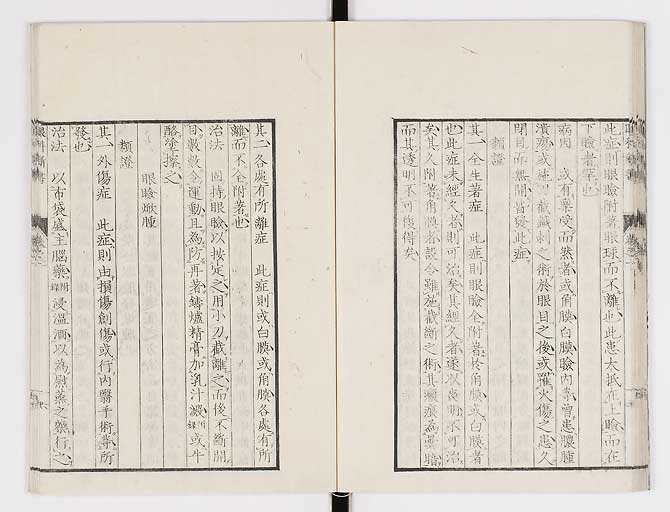 此症則眼瞼附著眼球而不離也此患大抵在上瞼而在
下瞼者罕也
病因 或有稟受而然者或角膜白膜瞼內等曾患膿腫
潰瘍或施截鍼刺之術於眼目之後或罹火傷之患久
閉目而無開者發此症
類證
其一全生著症 此症則眼瞼全附著於角膜或白膜者
也此症未經久者則可治矣其經久者遂以失明不可治
矣其久附著角膜者設令雖施截斷之術其瘢痕為翳暗
而其透明不可復得矣
其二各處有所離症 此症則或白膜或角膜各處有所
離而不全附著也
治法 固持眼瞼以按定之用小刀截離之而後不斷開
目數數令運動且為防再著鑄爐精膏加乳汁澱附錄或牛
酪塗擦之
眼瞼焮腫
類證
其一外傷症 此症則由損傷創傷或行內醫手術等所
發也
治法 以布袋盛主腦藥附錄浸溫酒以為慰蒸之藥行之
眼科新書